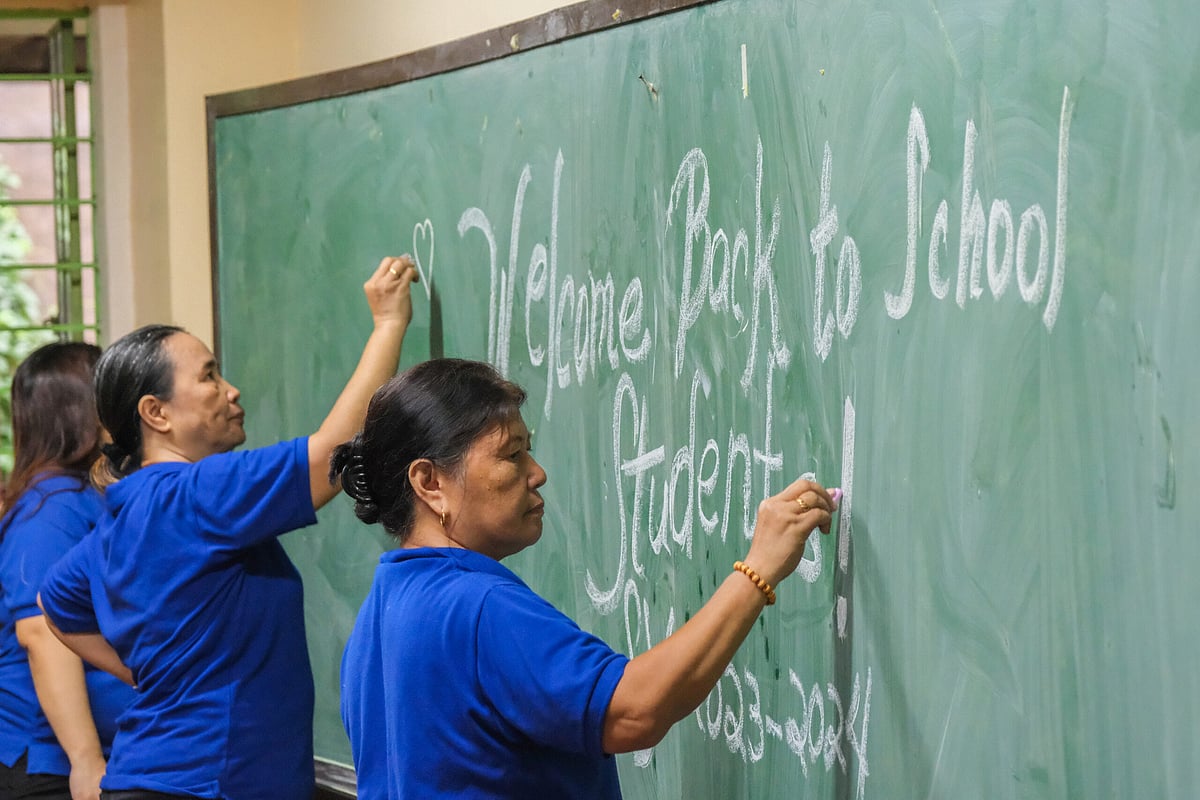 Welcome Back to School
Students!
2023-2024